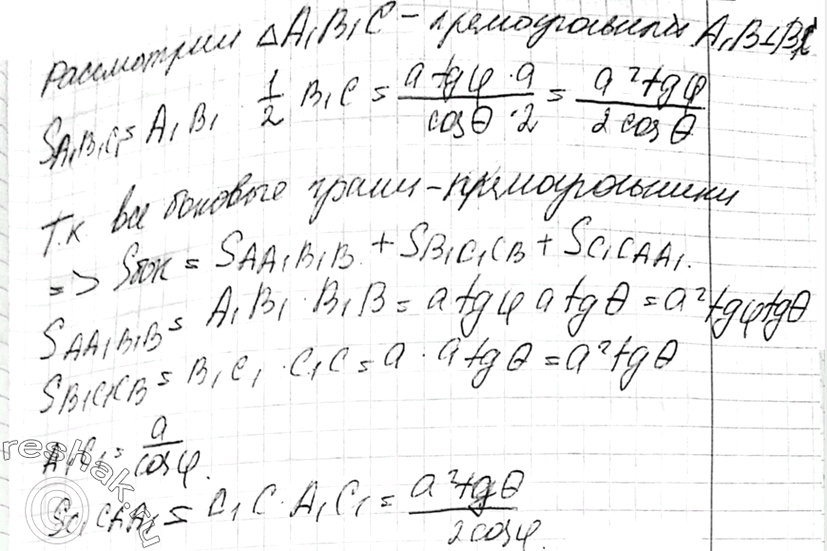 Рассмотрим △A₁B₁C – прямоугольный A₁B⊥B₁C
S_{A₁B₁C₁} = A₁B₁ · 1/2 B₁C = (a tgφ · a)/(cosθ · 2) = (a² tgφ)/(2 cosθ)
Т.к все боковые грани – прямоугольники
=> Sбок = S_{AA₁B₁B} + S_{B₁C₁CB} + S_{C₁CAA₁}.
S_{AA₁B₁B} = A₁B₁ · B₁B = a tgφ a tgθ = a² tgφ tgθ
S_{B₁C₁CB} = B₁C₁ · C₁C = a · a tgθ = a² tgθ
A₁C₁ = a/cosφ.
S_{C₁CAA₁} = C₁C · A₁C₁ = (a² tgθ)/(2cosφ).
reshak.ru